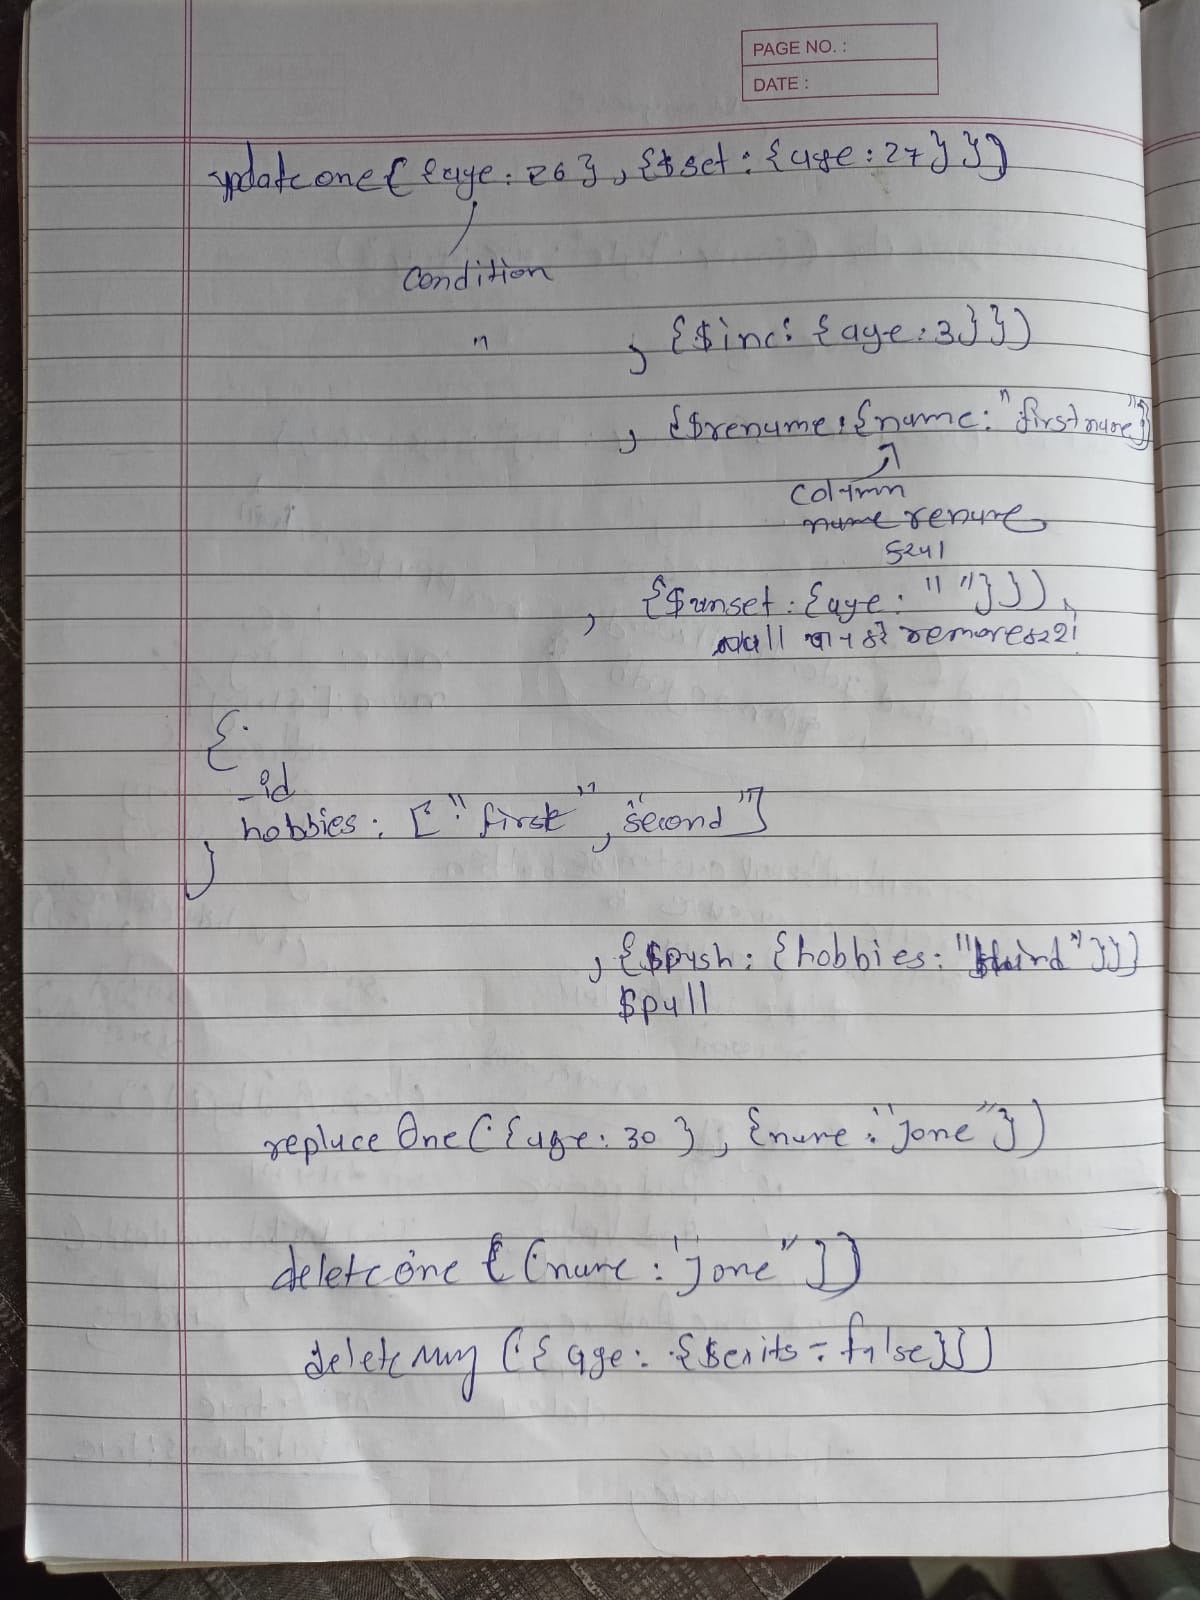 PAGE NO. :
DATE :
updateone( {age: 26}, {$set: {age: 27}})
condition
" , {$inc: {age: 3}})
, {$rename: {name: "firstname"}}
column
name rename
, {$unset: {age: " "}})
remove
{
_id
hobbies: ["first", "second"]
}
, {$push: {hobbies: "third"}}}
$pull
replaceOne({age: 30}, {name: "jone"})
deleteone {(name: "jone"})
deletemny ({age: {$exits: false}})